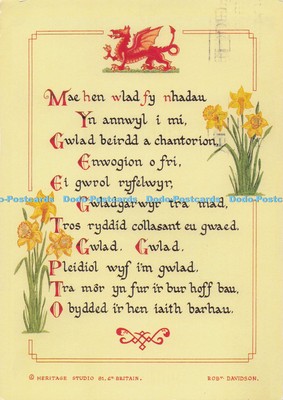 Mae hen wlad fy nhadau
Yn annwyl i mi,
Gwlad beirdd a chantorion,
Enwogion o fri,
Ei gwrol ryfelwyr,
Gwladgarwyr tra mâd,
Tros ryddid collasant eu gwaed.
Gwlad, Gwlad,
Pleidiol wyf i'm gwlad.
Tra môr yn fur i'r bur hoff bau,
O bydded i'r hen iaith barhau.
© HERITAGE STUDIO GT. BRITAIN.
ROBT DAVIDSON.
Dodo-Postcards Dodo-Postcards Dodo-Postcards